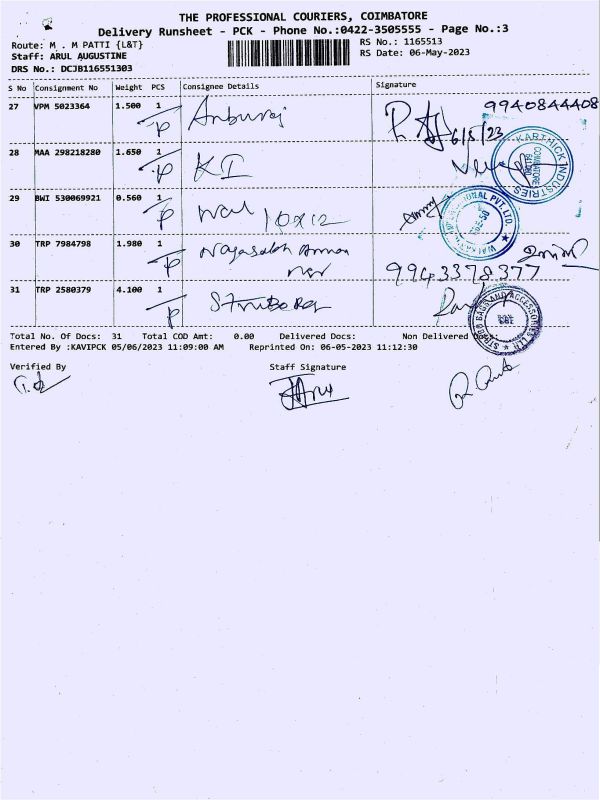 THE PROFESSIONAL COURIERS, COIMBATORE
Delivery Runsheet - PCK - Phone No.:0422-3505555 - Page No.:3
Route: M . M PATTI {L&T} RS No.: 1165513
Staff: ARUL AUGUSTINE RS Date: 06-May-2023
DRS No.: DCJB116551303
S No Consignment No Weight PCS Consignee Details Signature
27 VPM 5023364 1.500 1 Anburaj 9940844408
P 6/5/23
28 MAA 298218280 1.650 1 KI
P KARTHICK INDUSTRIES
29 BWI 530069921 0.560 1 Wal 10x12
P PVT. LTD.
30 TRP 7984798 1.980 1
P 9943378377
31 TRP 2580379 4.100 1
P STROBO BAGS AND ACCESSORIES LLP
Total No. Of Docs: 31 Total COD Amt: 0.00 Delivered Docs: Non Delivered
Entered By :KAVIPCK 05/06/2023 11:09:00 AM Reprinted On: 06-05-2023 11:12:30
Verified By Staff Signature